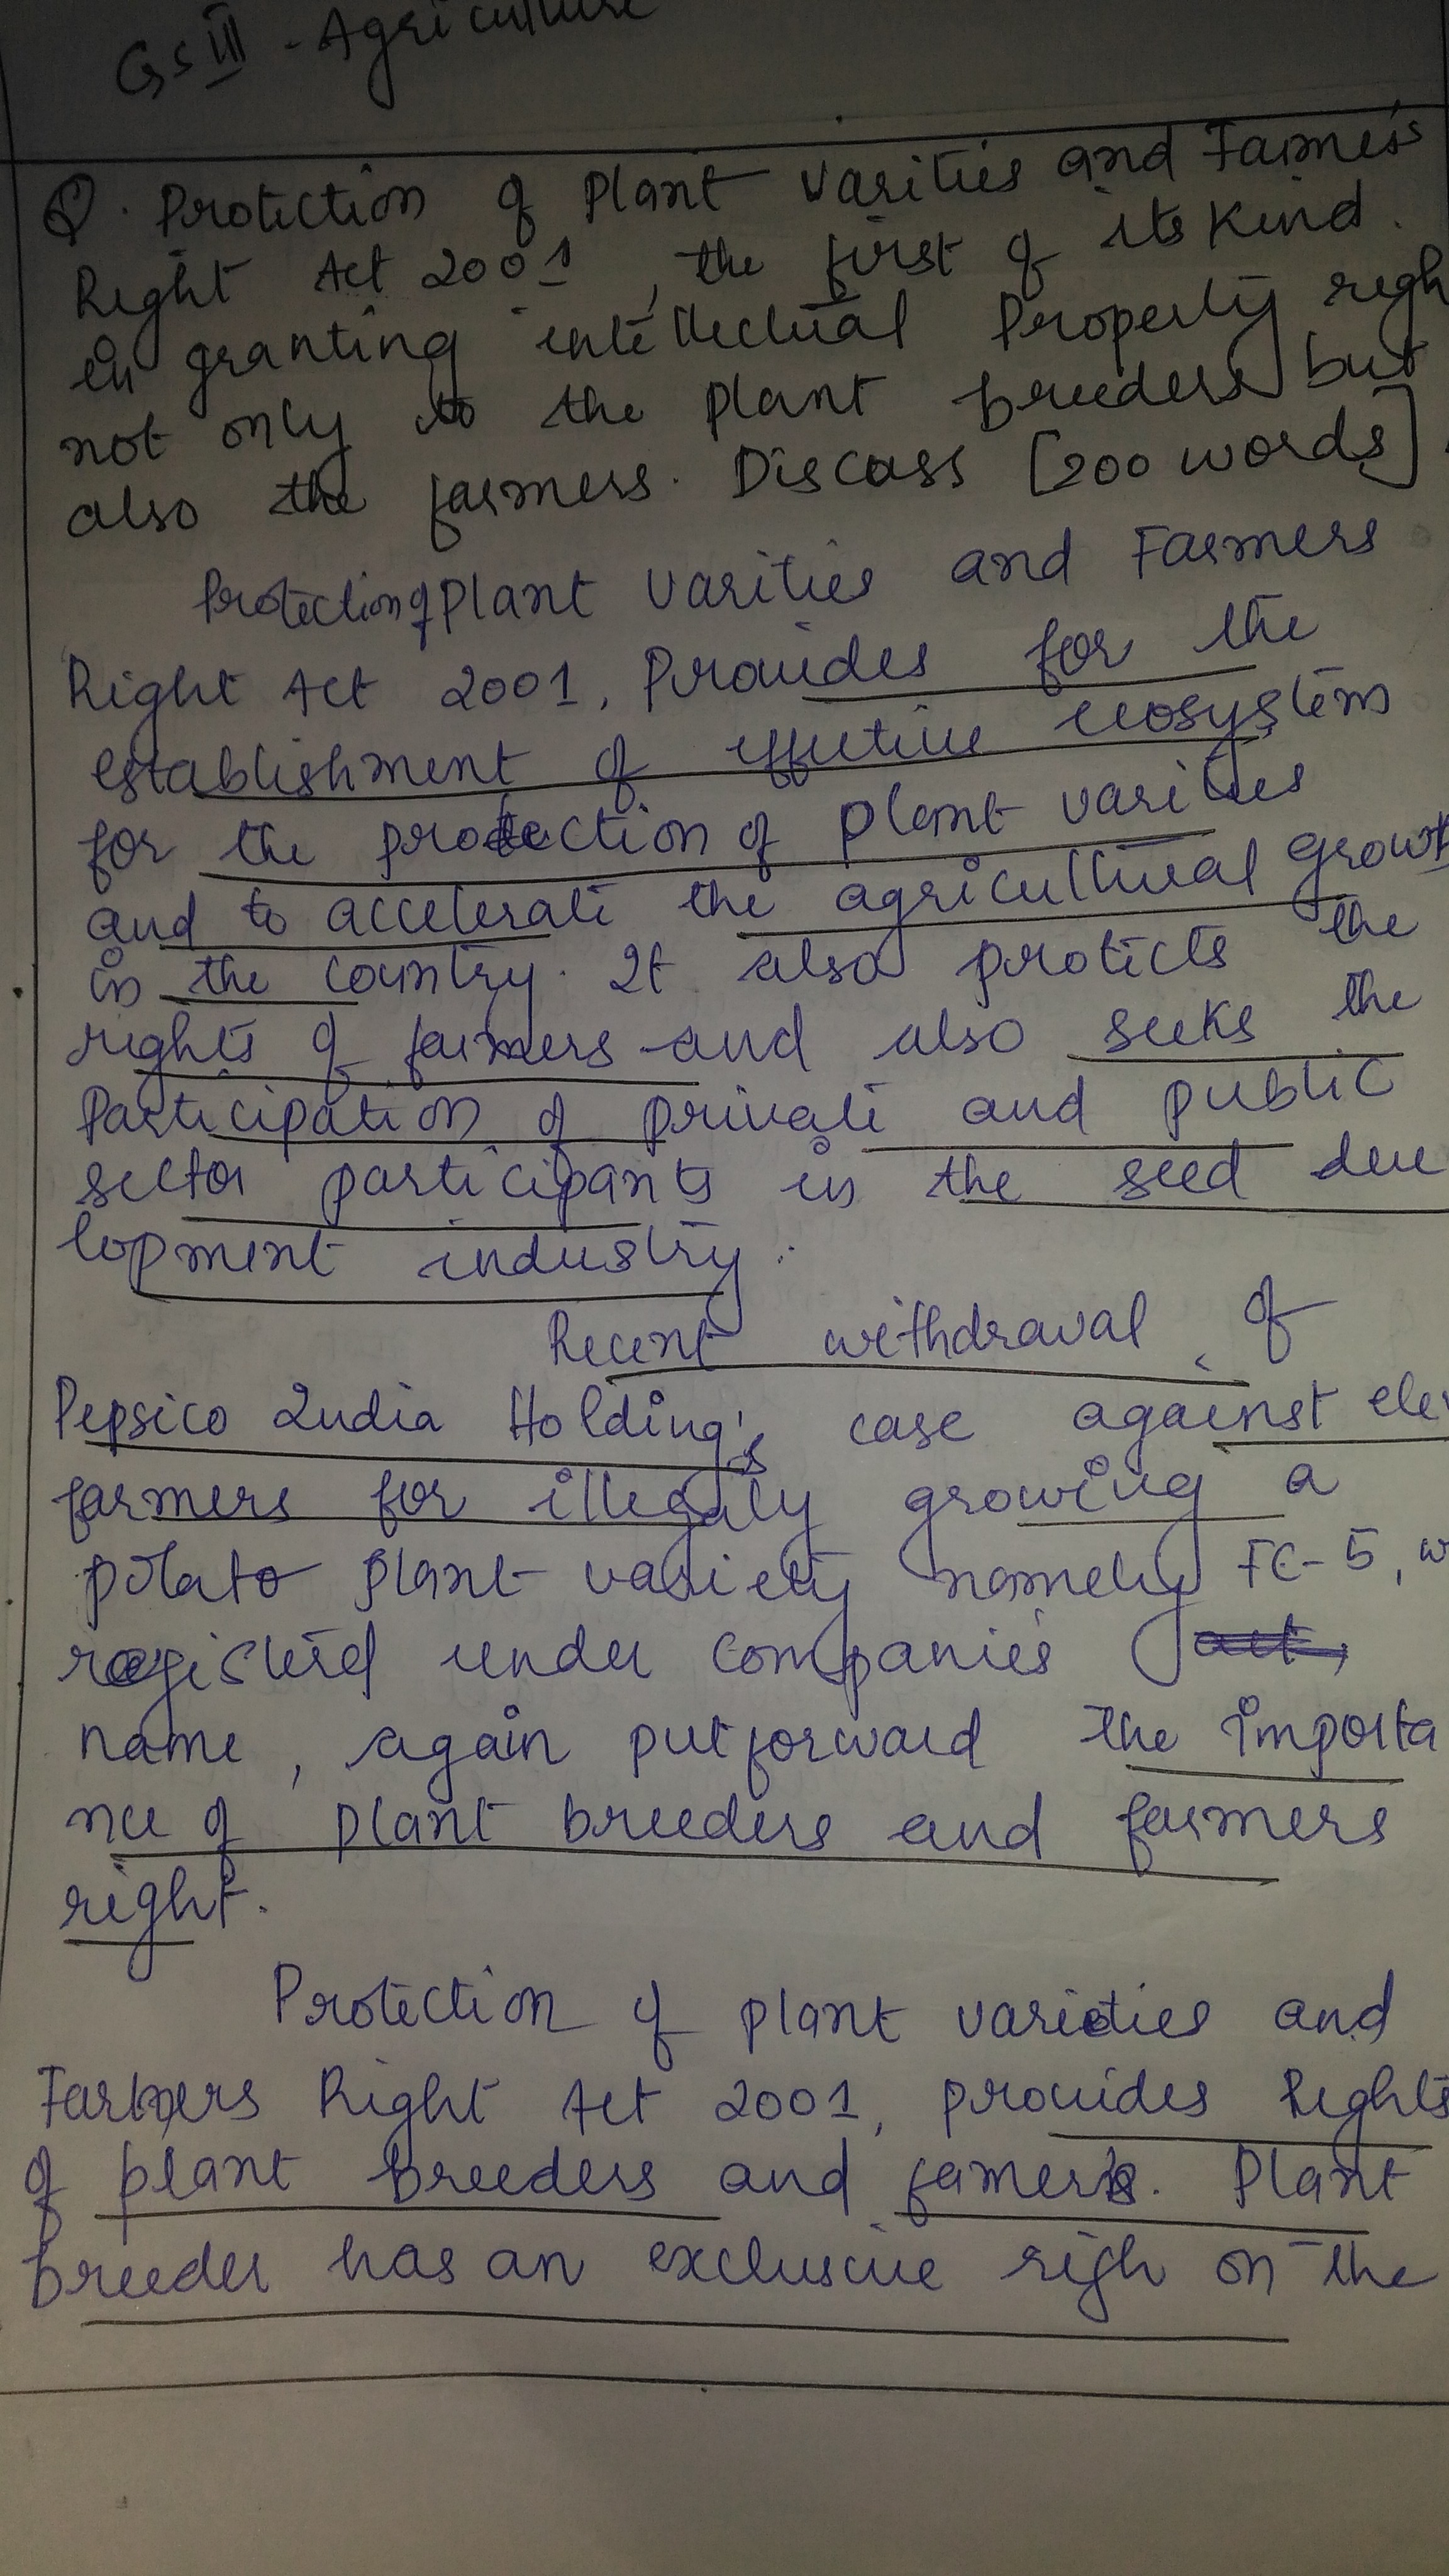 GS III - Agriculture
Q. Protection of Plant Varities and Farmer's
Right Act 2001, the first of its kind.
in granting intellectual Property righ
not only to the plant breeders but
also the farmers. Discuss [200 words].
Protection of Plant Varities and Farmers
Right Act 2001, Provides for the
establishment of effective ecosystem
for the protection of plant varities
and to accelerate the agricultural growt
in the country. It also protects the
rights of farmers and also seeks the
Participation of private and public
sector participants in the seed deve
lopment industry.
Recent withdraval of
Pepsico India Holding's case against ele
farmers for illegaly growing a
potato plant variety namely FC-5, w
registered under companies
name, again put forward the importa
nce of plant breeders and farmers
right.
Protection of plant varieties and
Farmers Right Act 2001, provides Rights
of plant breeders and famers. Plant
breeder has an exclusive righ on the